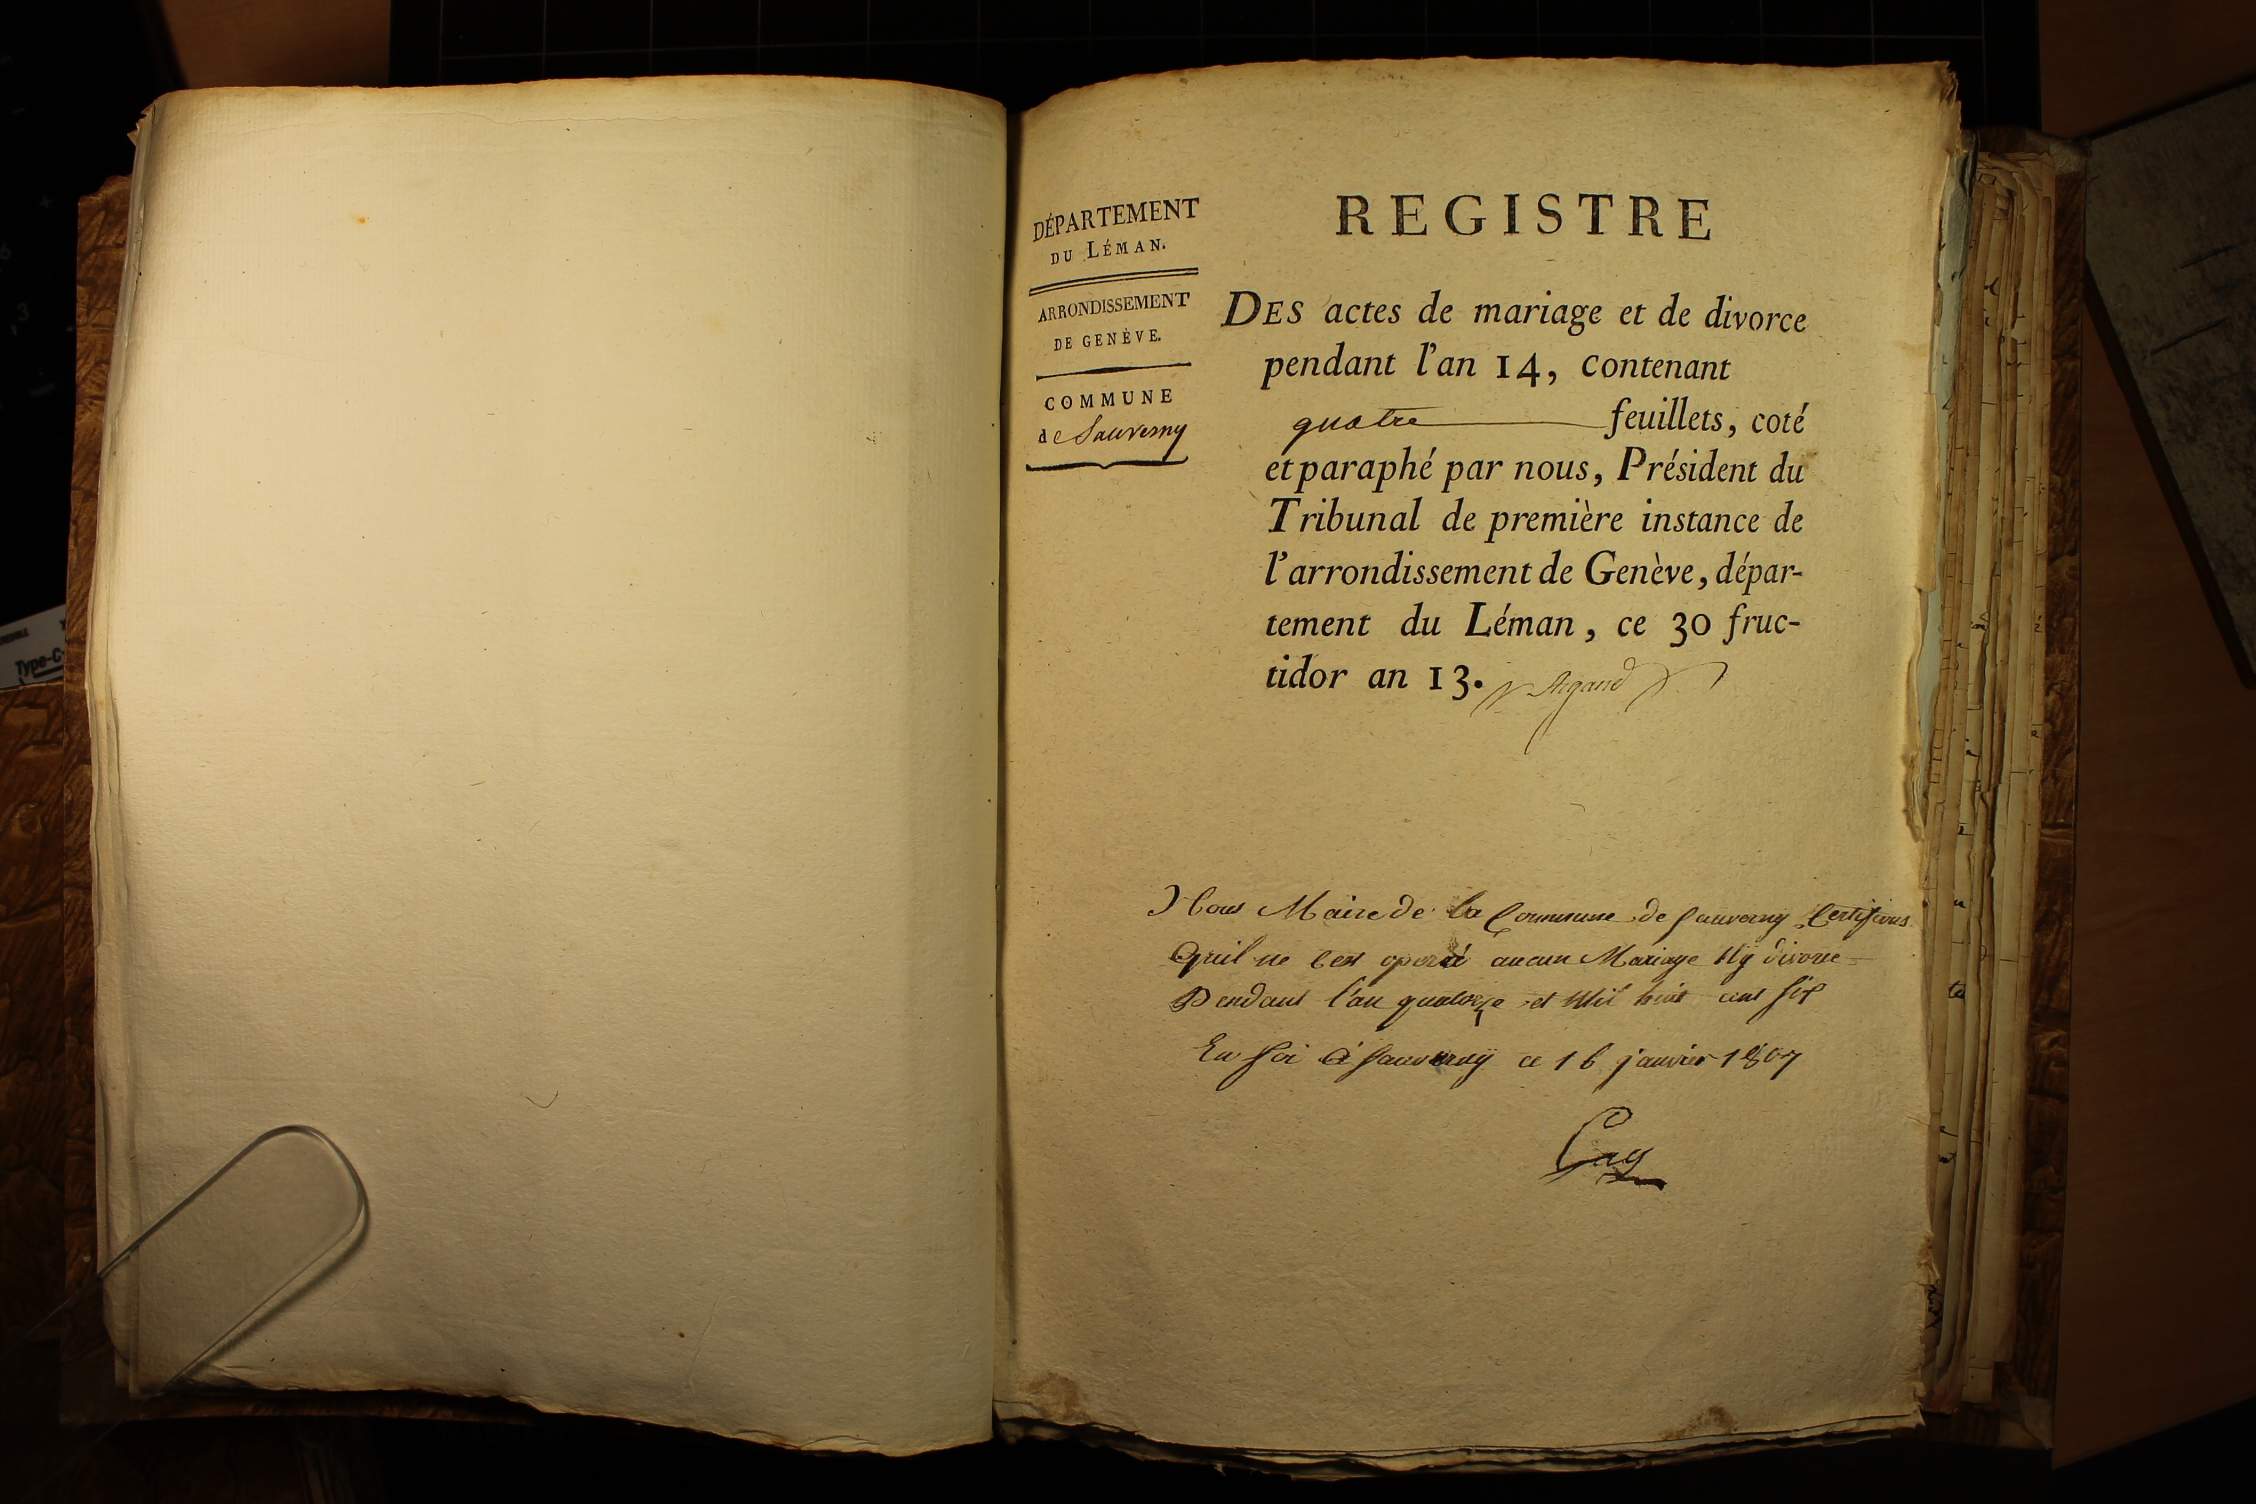 DÉPARTEMENT
DU LÉMAN.
ARRONDISSEMENT
DE GENÈVE.
COMMUNE
de Sauverny
REGISTRE
DES actes de mariage et de divorce
pendant l'an 14, contenant
quatre feuillets, coté
et paraphé par nous, Président du
Tribunal de première instance de
l'arrondissement de Genève, dépar-
tement du Léman, ce 30 fruc-
tidor an 13. Argand
Nous Maire de la Commune de Sauverny Certifions
Quil ne Cest operé aucun Mariage Ny divorce
Pendant l'an quatorze et Mil huit cent six
En foi à Sauverny ce 16 janvier 1807
Type-C